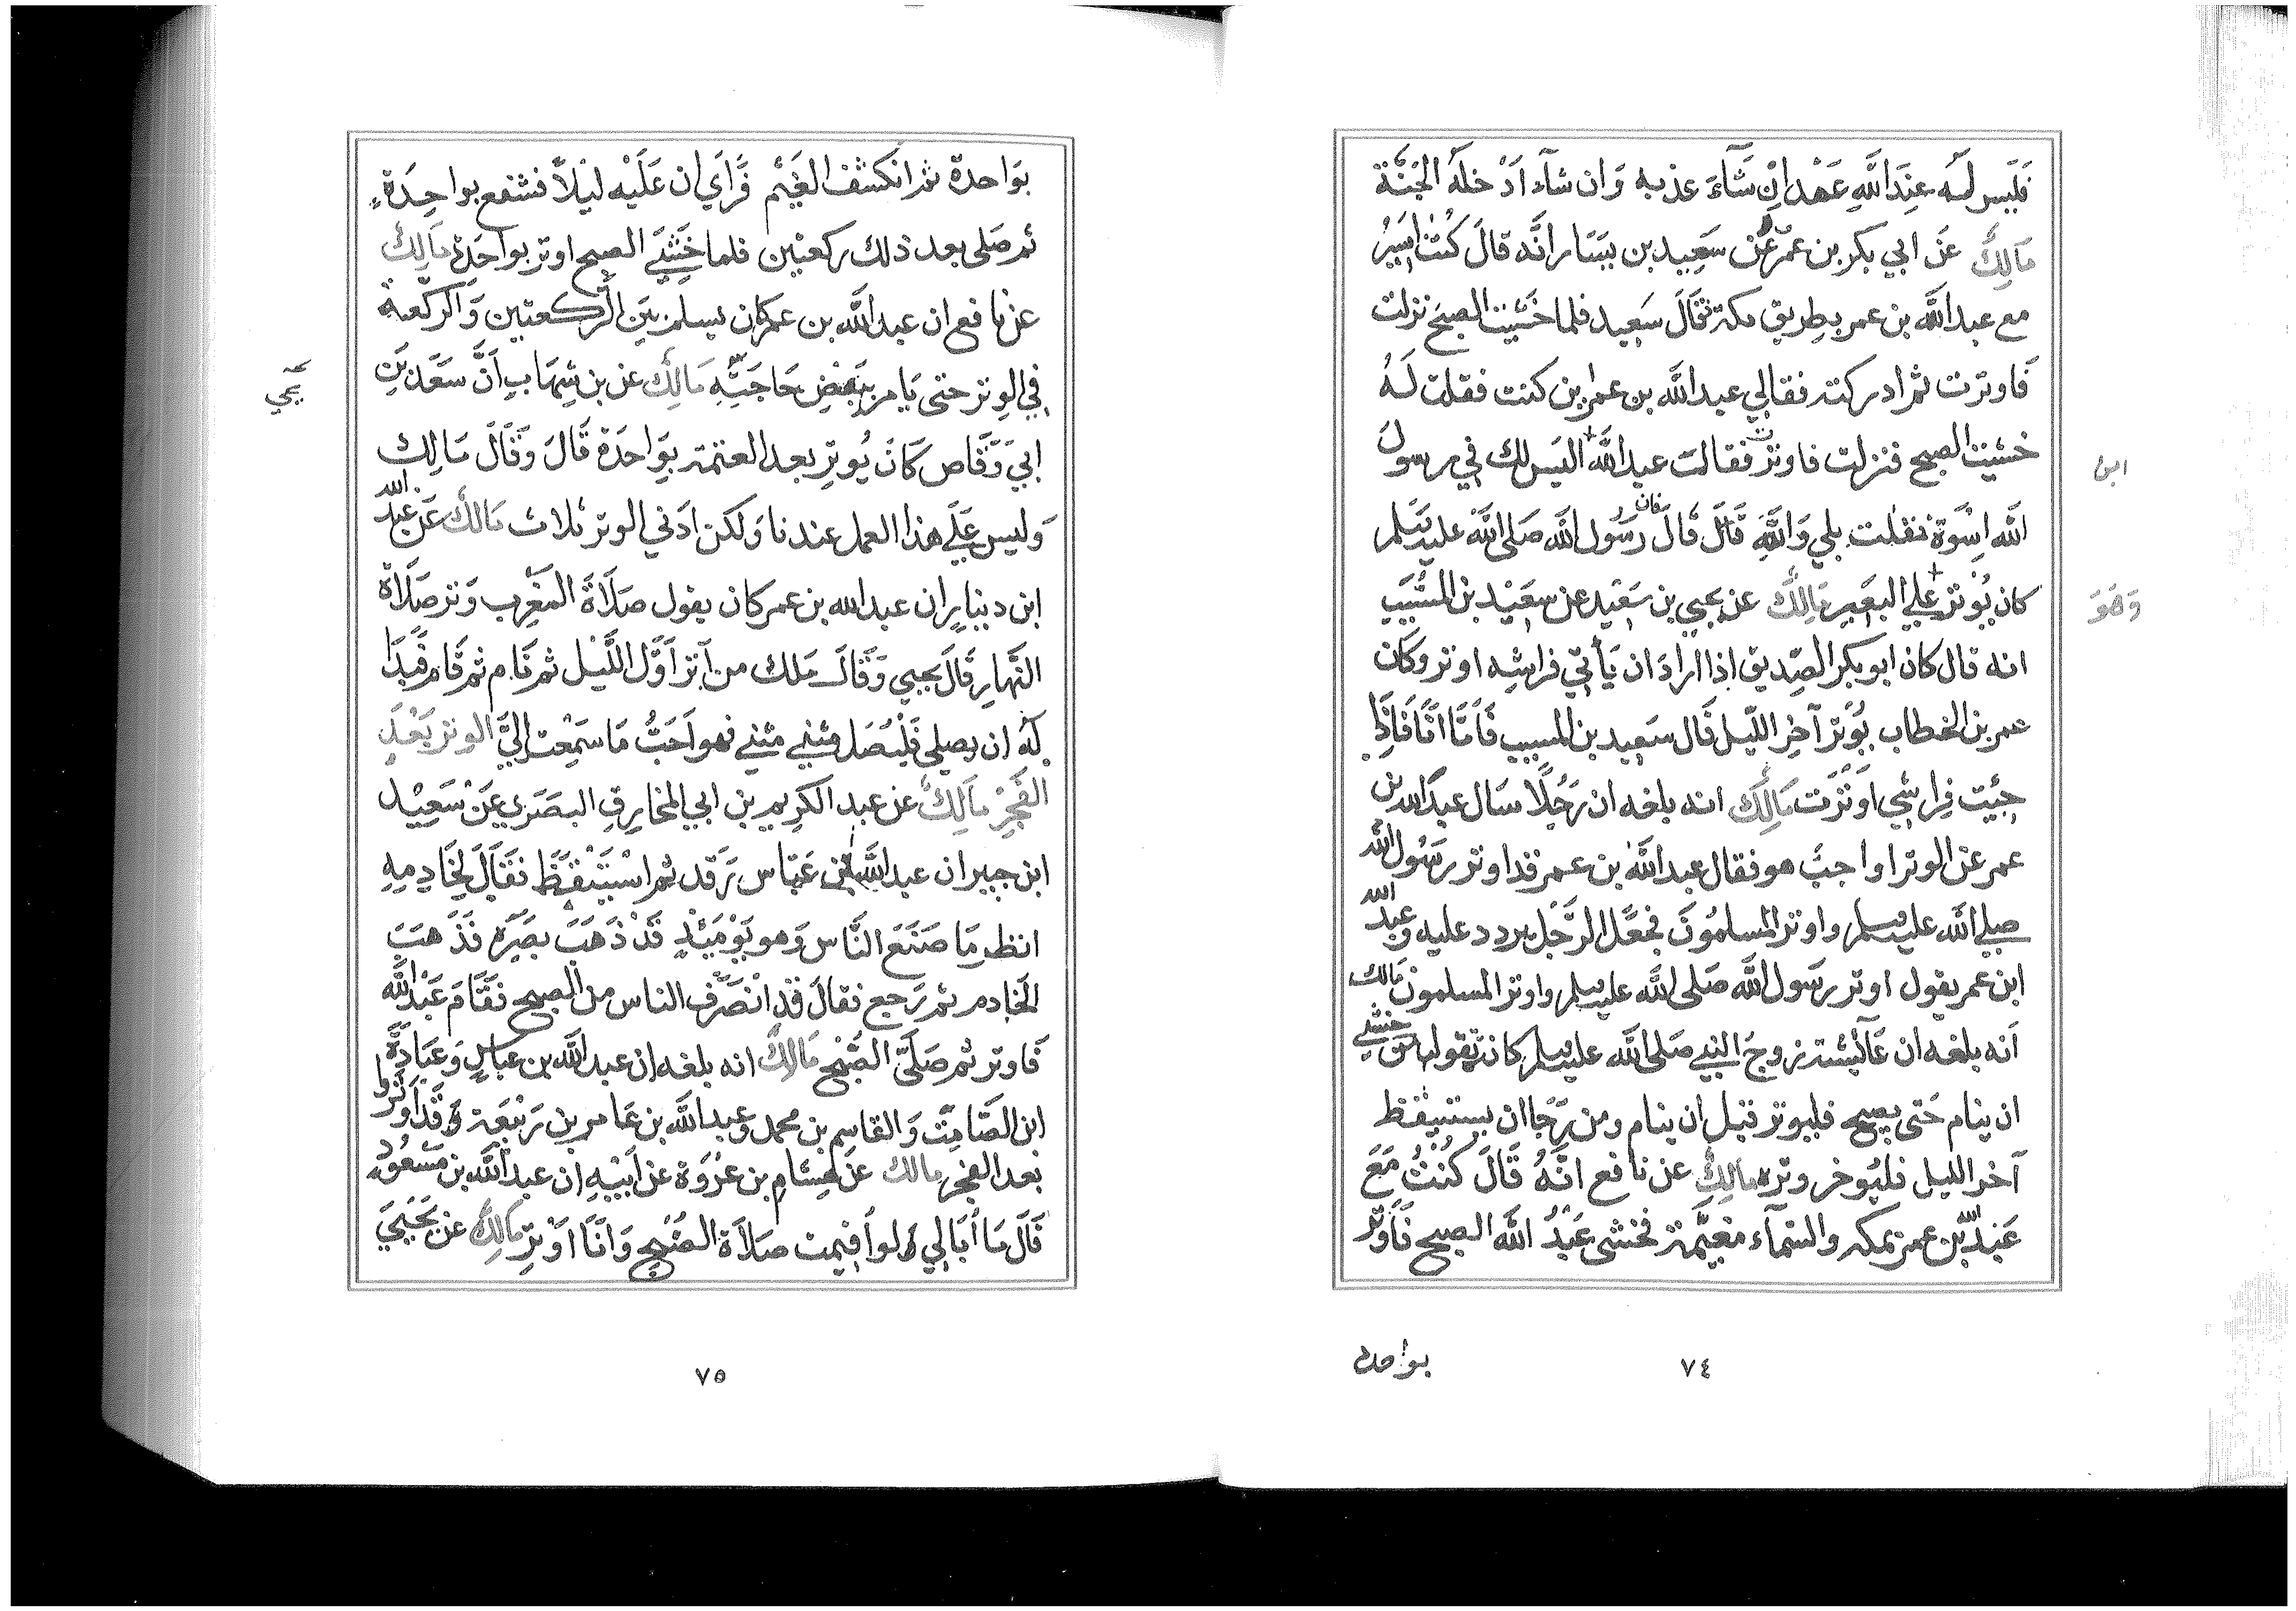 فَلَيس لَه عِندَ اللَّهِ عَهْد اِنْ شَآءَ عذبه وَان شآء اَدْخلهُ الجَنَّة
مَالِكٌ عَن ابي بكر بن عمر عَن سَعِيد بن يسَار انَّه قالَ كُنتُ اَسِيرُ
مع عبد اللَّه بن عمر بطريق مكة قَالَ سَعِيد فلما خَشيت الصبح نزلت
فَاوترت ثمر ادركته فقال لي عبد اللَّه بن عمر اين كنت فقلت لَهُ
خشيت الصبح فنزلت فاوترت فقالت عبد اللَّه اليَس لك في رسول
ابن
اللَّه اِسْوَة فقلت بلي وَاللَّهِ قَالَ فان رَسُول اللَّه صَلى اللَّه عليه وسلم
كان يُوتر علي البَعِير مَالِكٌ عن يحيي بن سَعِيد عن سعِيْد بن المسَيَّبِ
وَهوَ
انه قال كان ابو بكر الصِّديق اذا ارادَ ان يَأتي فراشِه اوتر وكان
عمر بن الخطاب يُوتر آخِر اللّيل قَال سَعِيد بن المسيب فَاَمَّا انَا فَاِذَا
جِئيت فِراشي اَوتَرت مَالِكٌ انه بلغه ان رَجُلًا سَال عبد اللَّه بن
عمر عن الوتر اواجبٌ هو فقال عبد اللَّه بن عمر قد اوتر رسُول اللَّه
صلي اللَّه عليه وسلم واوتر المسلمُونَ فجعَل الرَّجُل يردد عليه وعبد اللَّه
ابن عمر يقول اوتر رسُول اللَّه صَلى اللَّه عليه وسلم واوتر المسلمون مَالك
اَنه بلغه ان عَآئِشة زوجَ النبي صَلى اللَّه عليه وسلم كانت تقول من خشي
ان ينام حَتى يصبح فليوتر قبل ان ينام ومن رَجَا ان يستيقظ
آخر الليل فليُوخر وتره مَالِكٌ عن نافع انَّهُ قَالَ كُنْتُ مَعَ
عَبْد اللَّه بن عمر بمكة والسَّمآء مغيّمة فخشى عَبْدُ اللَّه الصبح فَاَوتر
بواحدة
٧٤
بوَاحدة ثمر انكشف الغَيْم فَرَاَي ان عَلَيْه ليْلاً فشفع بواحِدَةٍ
ثم صَلى بعد ذلك ركعتين فلما خَشِيَ الصبح اوتر بواحَدةٍ مَالِكٌ
عن نافع ان عبد اللَّه بن عمر كان يسلم بَين الركعتين وَالركعة
في الوتر حتى يَامر ببَعْضِ حَاجَتِه مَالِكٌ عن بن شِهَابٍ اَنَّ سَعْد بن
يحيي
ابي وَقَّاص كَانَ يُوتر بعد العتمة بوَاحدَة قَالَ وَقَالَ مَالِك
وَليس عَلَى هذا العمل عندنا وَلكن اَدني الوتر ثلاث مَالكٌ عَن عبد اللَّه
ابن دينارٍ ان عبد اللَّه بن عمر كان يقول صَلَاة المَغْرِب وَترْ صَلَاة
النَّهارِ قَالَ يحيي وَقَالَ ملك من اَوتَر اَوَّل اللَّيْل ثم نَام ثم قَام فَبَدَا
لَه ان يصلي فَلْيُصَلِ مثني مثني فهو اَحَبُّ مَا سَمِعْت اِلَيَّ الوتر بَعْدَ
الفَجْرِ مَالِكٌ عن عبد الكريم بن ابي المخارق البصَري عَنْ سَعِيْد
ابن جبير ان عبد اللَّه بن عَبَّاس رَقد ثم اسْتَيْقَظَ فقَالَ لِخَادِمِهِ
انظر مَا صَنَعَ النَّاس وَهو يَوْمَئِذٍ قَدْ ذَهَبَ بصَرَه فَذَهبَ
الخَادم ثم رَجع فقالَ قد انْصَرَف الناس من الصبح فقَامَ عَبْد اللَّه
فَاوتر ثم صَلَّى الصُّبْح مَالِكٌ انه بلغه ان عبد اللَّه بن عباس وَعبَادة
ابن الصَّامِت وَالقاسِم بن محمد وعبد اللَّه بن عَامر بن رَبْيعَة قَد اَوتَروا
بعد الفجر مالك عَن هِشَامِ بن عُرْوَة عن اَبيْهِ ان عبد اللَّه بن مَسْعُودٍ
قَالَ مَا اُبَالي لو اُقيمت صَلَاة الصُّبْح وَاَنَا اَوْتِر مَالِكٌ عن يَحْيَيَ
٧٥